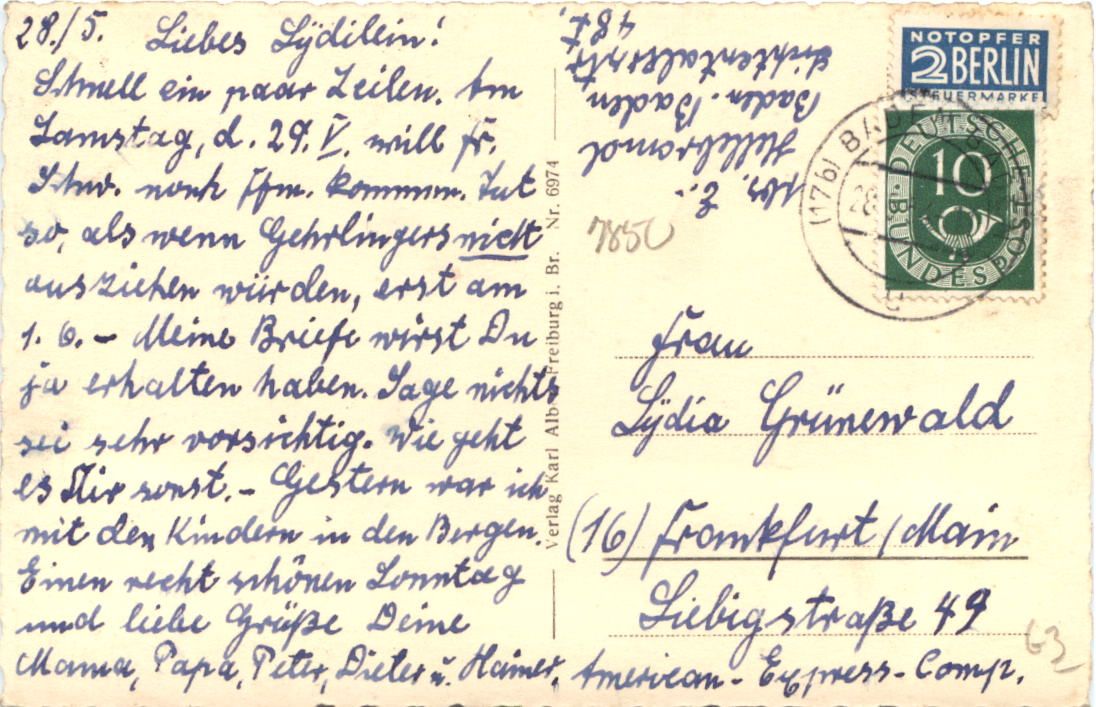 28./5. Liebes Lydilein!
Schnell ein paar Zeilen. Am
Samstag, d. 29. V. will Fr.
Schw. nach Ffm. kommen. Tut
so, als wenn Gehrlingers nicht
ausziehen würden, erst am
1. 6. - Meine Briefe wirst Du
ja erhalten haben. Sage nichts
sei sehr vorsichtig. Wie geht
es Dir sonst. - Gestern war ich
mit den Kindern in den Bergen.
Einen recht schönen Sonntag
und liebe Grüße Deine
Mama, Papa, Peter, Dieter u. Hainer.
Abs. E.
Hillebrand
Baden-Baden
Lichtentalerstr.
48 I
Verlag Karl Alber Freiburg i. Br. Nr. 6974
NOTOPFER
2 BERLIN
STEUERMARKE
DEUTSCHE
BUNDESPOST
10
(17b) BADEN-BADEN
28.
7850
Frau
Lydia Grünewald
(16) Frankfurt/Main
Liebigstraße 49
American-Express-Comp.
63